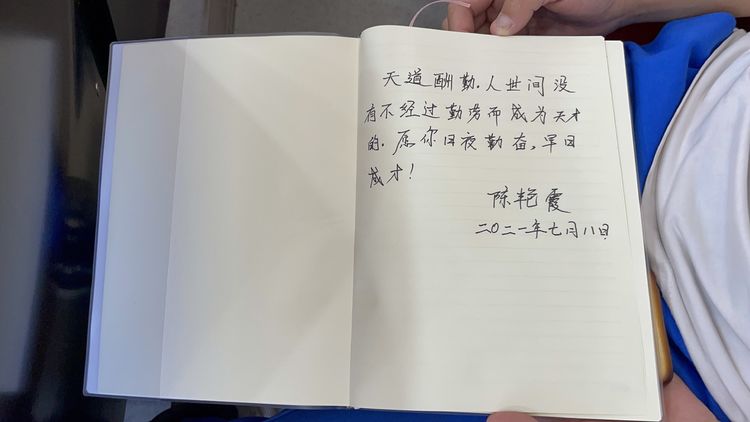 天道酬勤.人世间没
有不经过勤劳而成为天才
的.愿你日夜勤奋,早日
成才!
陈艳霞
二〇二一年七月八日